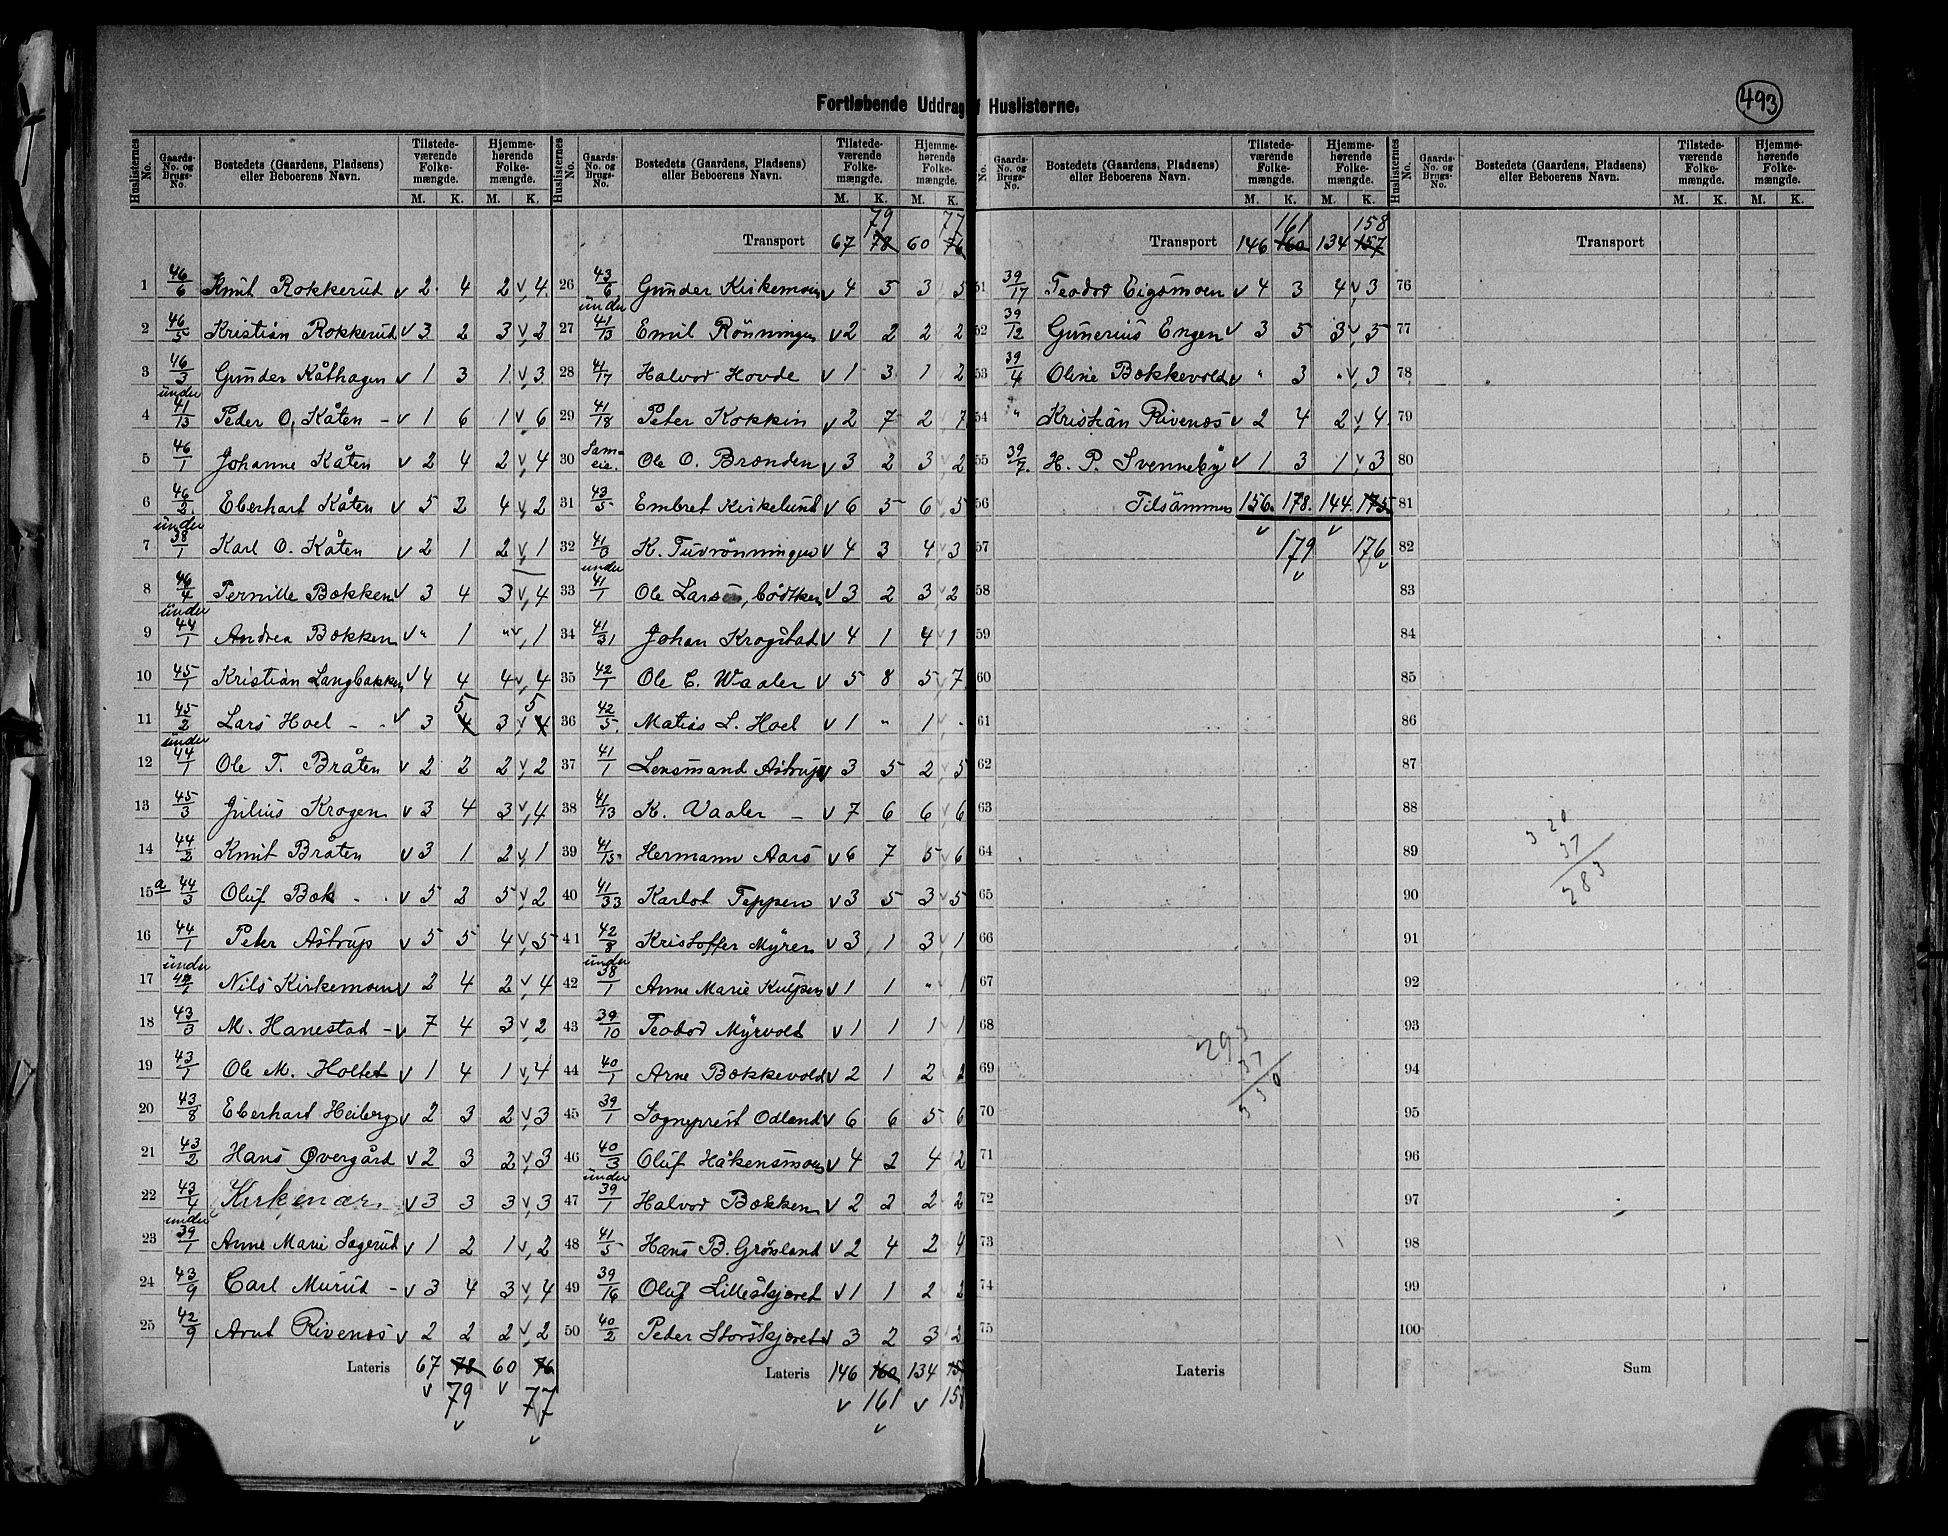 Fortløbende Uddrag Huslisterne.
493
Huslisternes No. | Gaards-No. og Brugs-No. | Bostedets (Gaardens, Pladsens) eller Beboerens Navn. | Tilstedeværende Folkemængde. M. K. | Hjemmehørende Folkemængde. M. K.
1 46/6 Knut Rokkerud v 2 4 2 v 4
2 46/5 Kristian Rokkerud v 3 2 3 v 2
3 46/3 Gunder Kåthagen v 1 3 1 v 3
4 under 41/13 Peder O. Kåten - v 1 6 1 v 6
5 46/1 Johanne Kåten v 2 4 2 v 4
6 46/2 Eberhart Kåten v 5 2 4 v 2
7 under 38/1 Karl O. Kåten v 2 1 2 v 1
8 46/4 Pernille Bækken v 3 4 3 v 4
9 under 44/1 Andrea Bækken v " 1 " v 1
10 45/1 Kristian Langbakken v 4 4 4 v 4
11 45/2 Lars Hoel - - v 3 4 5 3 v 4 5
12 under 44/1 Ole T. Bråten v 2 2 2 v 2
13 45/3 Julius Krogen v 3 4 3 v 4
14 44/2 Knut Bråten v 3 1 2 v 1
15 a 44/3 Oluf Bæk - . v 5 2 5 v 2
16 44/1 Peter Astrup v 5 5 4 v 5
17 under Nils Kirkemoen v 2 4 2 v 4
18 43/3 M. Hanestad - v 7 4 3 v 2
19 43/1 Ole M. Holtet v 1 4 1 v 4
20 43/8 Eberhart Heiberg v 2 3 2 v 3
21 43/2 Hans Øvergård v 2 3 2 v 3
22 43/4 Kirkenær v 3 3 3 v 3
23 under 39/1 Anne Marie Sagerud v 1 2 1 v 2
24 43/9 Carl Murud - v 3 4 3 v 4
25 42/9 Arnt Rivenæs v 2 2 2 v 2
Lateris 67 78 60 76
v 79 v 77
v v
Huslisternes No. | Gaards-No. og Brugs-No. | Bostedets (Gaardens, Pladsens) eller Beboerens Navn. | Tilstedeværende Folkemængde. M. K. | Hjemmehørende Folkemængde. M. K.
79 77
Transport 67 78 60 76
26 43/6 Gunder Kirkemoen v 4 5 3 v 5
27 under 41/13 Emil Rønningen v 2 2 2 v 2
28 41/17 Halvor Hovde v 1 3 1 v 2
29 41/18 Peter Kokkin v 2 7 2 v 7
30 Sameie. Ole O. Brænden v 3 2 3 v 2
31 43/5 Embret Kirkelund v 6 5 6 v 5
32 K. Tuvrønningen v 4 3 4 v 3
33 under 41/1 Ole Larsen, v 3 2 3 v 2
34 41/31 Johan Krogstad v 4 1 4 v 1
35 42/1 Ole E. Waaler v 5 8 5 v 7
36 42/5 Matias L. Hoel v 1 " 1 v "
37 41/1 Lensmand Astrup v 3 5 2 v 5
38 41/13 K. Vaaler - v 7 6 6 v 6
39 41/15 Hermann Aars v 6 7 5 v 6
40 41/33 Karlot Teppen v 3 5 3 v 5
41 42/8 Kristoffer Myren v 3 1 3 v 1
42 under 38/1 Anne Marie Kulpen v 1 1 " v 1
43 39/10 Teodor Myrvold v 1 1 1 v 1
44 40/1 Arne Bækkevold v 2 1 2 v 2
45 39/1 Sogneprest Odland v 6 6 5 v 6
46 40/3 Oluf Håkensmoen v 4 2 4 v 2
47 under 39/1 Halvor Bækken v 2 2 2 v 2
48 41/5 Hans B. Grøsland v 2 4 2 v 4
49 39/16 Oluf Lilleskjæret v 1 1 2 v 2
50 40/2 Peter Storskjæret v 3 2 3 v 2
Lateris 146 160 134
v 161 v 158
v
No. | Gaards-No. og Brugs-No. | Bostedets (Gaardens, Pladsens) eller Beboerens Navn. | Tilstedeværende Folkemængde. M. K. | Hjemmehørende Folkemængde. M. K.
161 158
Transport 146 160 134 157
51 39/17 Teodor Eigsmoen v 4 3 4 v 3
52 39/12 Gunerius Engen v 3 5 3 v 5
53 39/4 Oline Bækkevold v " 3 " v 3
54 " Kristian Rivenæs v 2 4 2 v 4
55 39/7. H. P. Svenneby v 1 3 1 v 3
56 Tilsammen 156. 178. 144. 175.
v v
57 179 176
v v
58
59
60
61
62
63
64
65
66
67
68
69
70
71
72
73
74
75
293
37
330
Lateris
Huslisternes No. | Gaards-No. og Brugs-No. | Bostedets (Gaardens, Pladsens) eller Beboerens Navn. | Tilstedeværende Folkemængde. M. K. | Hjemmehørende Folkemængde. M. K.
Transport
76
77
78
79
80
81
82
83
84
85
86
87
88
89
90
91
92
93
94
95
96
97
98
99
100
320
37
283
Sum